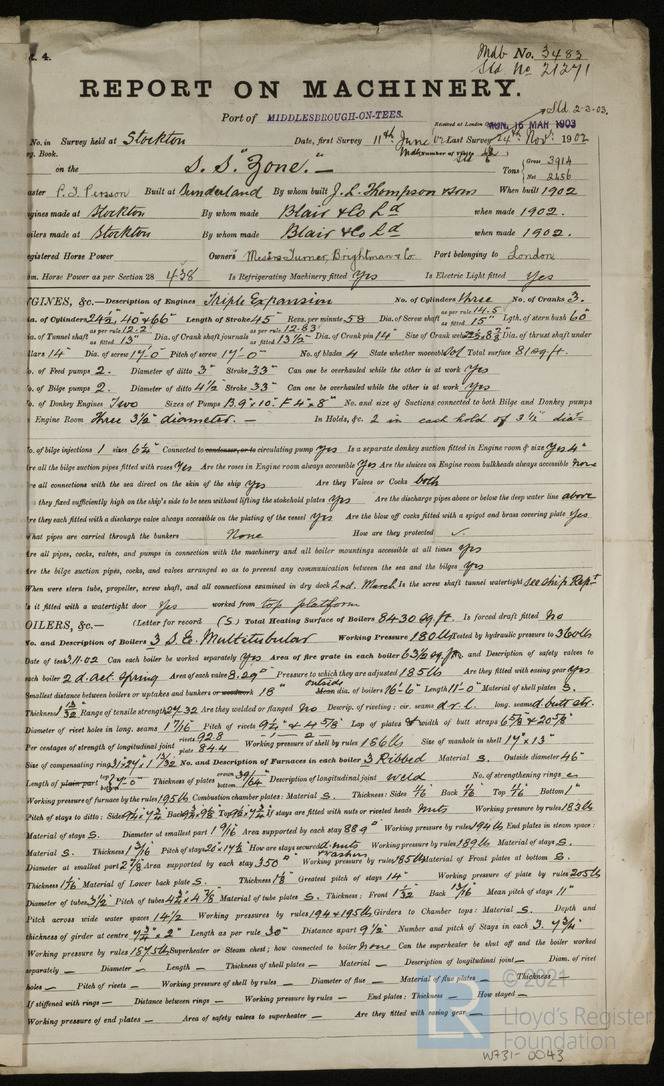 t. 4.
Mdb No. 3483
Sld No 21271
REPORT ON MACHINERY.
Port of MIDDLESBROUGH-ON-TEES.
Sld. 2-3-03.
Received at London
MON. 16 MAR 1903
No. in Survey held at Stockton Date, first Survey 11th June 02 Last Survey 24th Novr 1902
g. Book.
on the S.S. "Zone." — Tons Gross 3914
Net 2456
aster P. J. Persson Built at Sunderland By whom built J. L. Thompson & Sons When built 1902
ngines made at Stockton By whom made Blair & Co Ld when made 1902.
oilers made at Stockton By whom made Blair & Co Ld when made 1902.
egistered Horse Power Owners Messrs Turner, Brightman & Co Port belonging to London
om. Horse Power as per Section 28 438 Is Refrigerating Machinery fitted Yes Is Electric Light fitted Yes
NGINES, &c.—Description of Engines Triple Expansion No. of Cylinders three No. of Cranks 3.
ia. of Cylinders 24½" 40" & 66" Length of Stroke 45" Revs. per minute 58 Dia. of Screw shaft as per rule 14.5 as fitted 15" Lgth. of stern bush 60"
ia. of Tunnel shaft as per rule 12.2 as fitted 13" Dia. of Crank shaft journals as per rule 12.83 as fitted 13½" Dia. of Crank pin 14" Size of Crank webs Dia. of thrust shaft under
llars 14" Dia. of screw 17'-0" Pitch of screw 17'-0" No. of blades 4 State whether moveable Total surface 81 sq. ft.
o. of Feed pumps 2. Diameter of ditto 3" Stroke 33" Can one be overhauled while the other is at work Yes
o. of Bilge pumps 2. Diameter of ditto 4½ Stroke 33" Can one be overhauled while the other is at work Yes
o. of Donkey Engines Two Sizes of Pumps B 9" x 10". F 4" x 8" No. and size of Suctions connected to both Bilge and Donkey pumps
Engine Room three 3½" diameter. — In Holds, &c. 2 in each hold of 3½" diar
o. of bilge injections 1 sizes 6¼" Connected to condenser, or to circulating pump Yes Is a separate donkey suction fitted in Engine room & size Yes 4"
re all the bilge suction pipes fitted with roses Yes Are the roses in Engine room always accessible Yes Are the sluices on Engine room bulkheads always accessible none
re all connections with the sea direct on the skin of the ship Yes Are they Valves or Cocks both
they fixed sufficiently high on the ship's side to be seen without lifting the stokehold plates Yes Are the discharge pipes above or below the deep water line above
re they each fitted with a discharge valve always accessible on the plating of the vessel Yes Are the blow off cocks fitted with a spigot and brass covering plate Yes
hat pipes are carried through the bunkers None How are they protected ✓.
re all pipes, cocks, valves, and pumps in connection with the machinery and all boiler mountings accessible at all times Yes
re the bilge suction pipes, cocks, and valves arranged so as to prevent any communication between the sea and the bilges Yes
When were stern tube, propeller, screw shaft, and all connections examined in dry dock 2nd. March Is the screw shaft tunnel watertight see ship Rept
s it fitted with a watertight door Yes worked from top platform
OILERS, &c.— (Letter for record (S) Total Heating Surface of Boilers 6430 sq. ft. Is forced draft fitted No
No. and Description of Boilers 3 S.E. Multitubular Working Pressure 180 lbs Tested by hydraulic pressure to 360 lbs
Date of test 3.11.02 Can each boiler be worked separately Yes Area of fire grate in each boiler 63½ sq. ft. No. and Description of safety valves to
each boiler 2 d. act. spring Area of each valve 8.29" Pressure to which they are adjusted 185 lbs Are they fitted with easing gear Yes
Smallest distance between boilers or uptakes and bunkers or woodwork 18" outside Mean dia. of boilers 16'-6" Length 11'-0" Material of shell plates S.
Thickness 1 13/32 Range of tensile strength 27-32 Are they welded or flanged No Descrip. of riveting: cir. seams d.r.l. long. seams d. butt str.
Diameter of rivet holes in long. seams 1 7/16 Pitch of rivets 9¼" & 4 5/8" Lap of plates or width of butt straps 6 5/8 & 20 5/8"
Per centages of strength of longitudinal joint rivets 92.8 plate 84.4 Working pressure of shell by rules 186 lbs Size of manhole in shell 17" x 13"
Size of compensating ring 31 x 27 x 1 13/32 No. and Description of Furnaces in each boiler 3 Ribbed Material S. Outside diameter 46"
Length of plain part Thickness of plates crown 39/64 bottom Description of longitudinal joint weld No. of strengthening rings
Working pressure of furnace by the rules 195 lbs Combustion chamber plates: Material S. Thickness: Sides Back Top Bottom 1"
Pitch of stays to ditto: Sides Back Top If stays are fitted with nuts or riveted heads Nuts Working pressure by rules 183 lbs
Material of stays S. Diameter at smallest part 1 9/16 Area supported by each stay 88.9" Working pressure by rules 194 lbs End plates in steam space:
Material S. Thickness 1 3/16 Pitch of stays 20" x 17½ How are stays secured d. nuts washers Working pressure by rules 189 lbs Material of stays S.
Diameter at smallest part 2 7/8 Area supported by each stay 350" Working pressure by rules 185 lbs Material of Front plates at bottom S.
Thickness Material of Lower back plate S. Thickness Greatest pitch of stays 14" Working pressure of plate by rules 205 lbs
Diameter of tubes 3½ Pitch of tubes Material of tube plates S. Thickness: Front Back 13/16 Mean pitch of stays 11"
Pitch across wide water spaces 14½ Working pressures by rules 194 x 195 lbs Girders to Chamber tops: Material S. Depth and
thickness of girder at centre 7¾ x 2" Length as per rule 30" Distance apart 9½ Number and pitch of Stays in each 3. 7¾"
Working pressure by rules 187.5 lbs Superheater or Steam chest; how connected to boiler None Can the superheater be shut off and the boiler worked
separately — Diameter — Length — Thickness of shell plates — Material — Description of longitudinal joint — Diam. of rivet
holes — Pitch of rivets — Working pressure of shell by rules — Diameter of flue — Material of flue plates — Thickness —
If stiffened with rings — Distance between rings — Working pressure by rules — End plates: Thickness — How stayed —
Working pressure of end plates — Area of safety valves to superheater — Are they fitted with easing gear —
© 2021
Lloyd's Register
Foundation
W731-0043